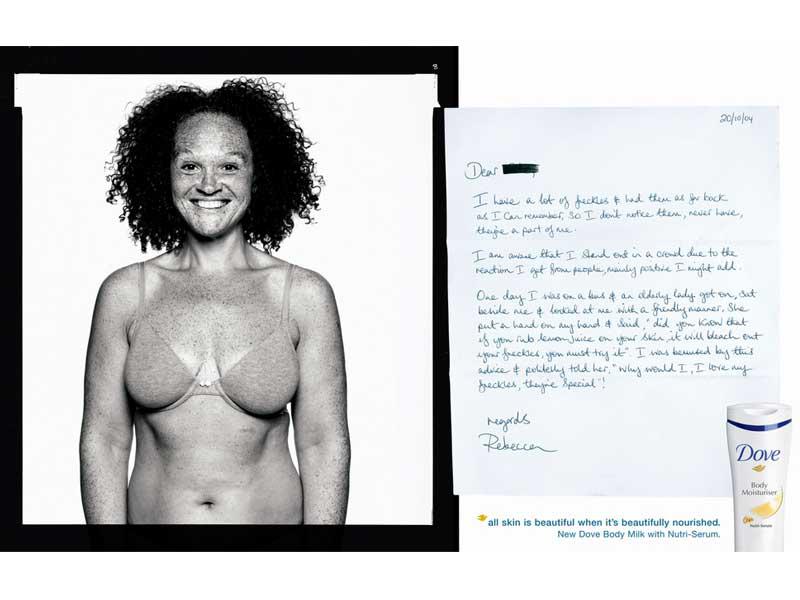 8
20/10/04
Dear
I have a lot of freckles & had them as far back
as I can remember, so I don't notice them, never have,
they're a part of me.
I am aware that I stand out in a crowd due to the
reaction I get from people, mainly positive I might add.
One day I was on a bus & an elderly lady got on, sat
beside me & looked at me with a friendly manner. She
put a hand on my hand & said, "did you know that
if you rub lemon juice on your skin, it will bleach out
your freckles, you must try it". I was bemused by this
advice & politely told her, "Why would I, I love my
freckles, they're special"!
regards
Rebecca
Dove
Body
Moisturiser
Nutri-Serum
all skin is beautiful when it's beautifully nourished.
New Dove Body Milk with Nutri-Serum.